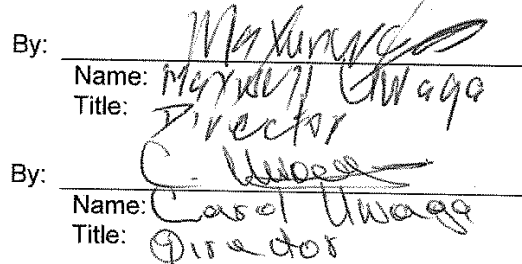 By:
Name: Maxwell Uwaga
Title: Director
By: C. Uwaga
Name: Carol Uwaga
Title: Director